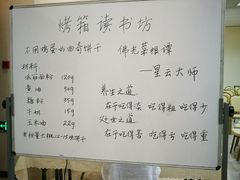 烤箱读书坊
不用烤蛋的曲奇饼干
佛光菜根谭
材料
——星云大师
低筋面粉 120g
黄油 50g
养生之道
糖粉 35g
在于吃得淡 吃得粗 吃得少
牛奶 15g
处世之道
玉米油 22g
在于吃得苦 吃得亏 吃得重